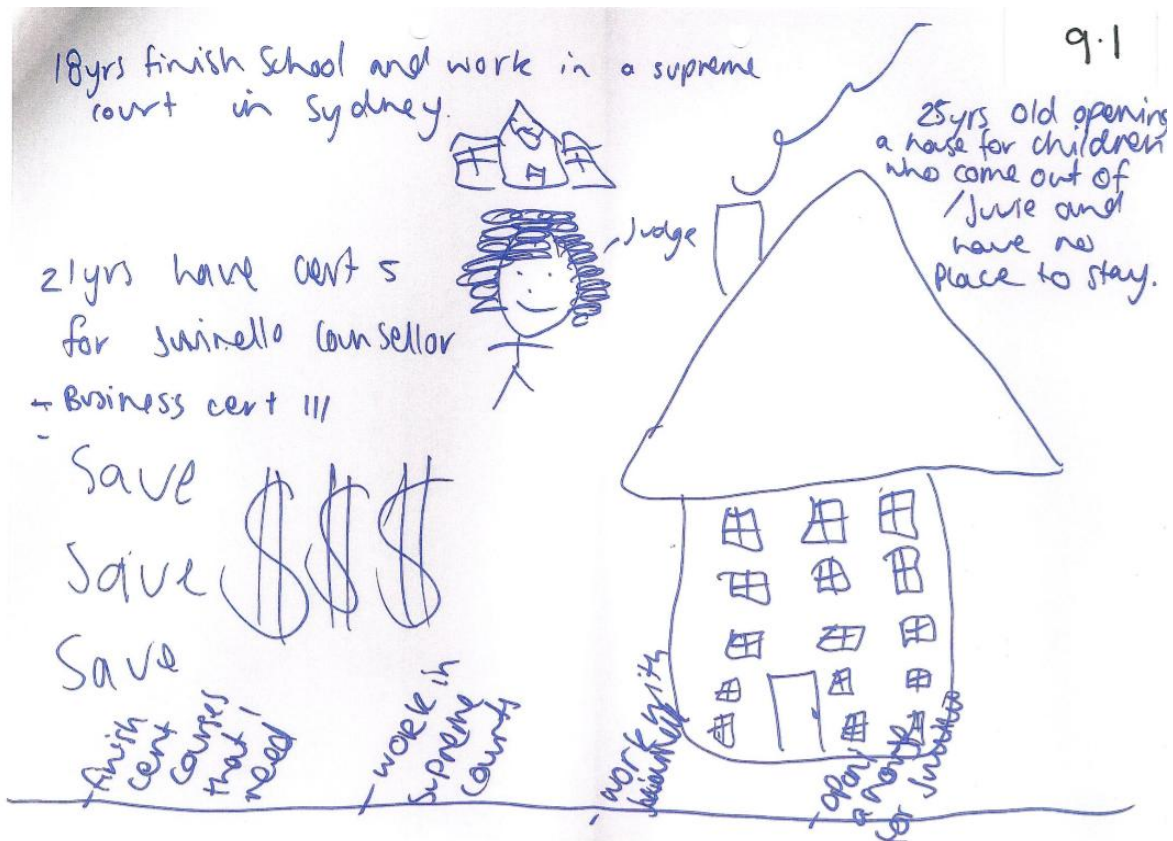 9.1
18yrs finish school and work in a supreme
court in Sydney.
25yrs old opening
a house for children
who come out of
/Juvie and
have no
place to stay.
Judge
21yrs have cert 5
for Juvinello Counsellor
+ Business cert 111
Save
Save $$$
Save
- finish
cert
courses
that I
need
- work in
supreme
courts
- work with
- open
a house
for